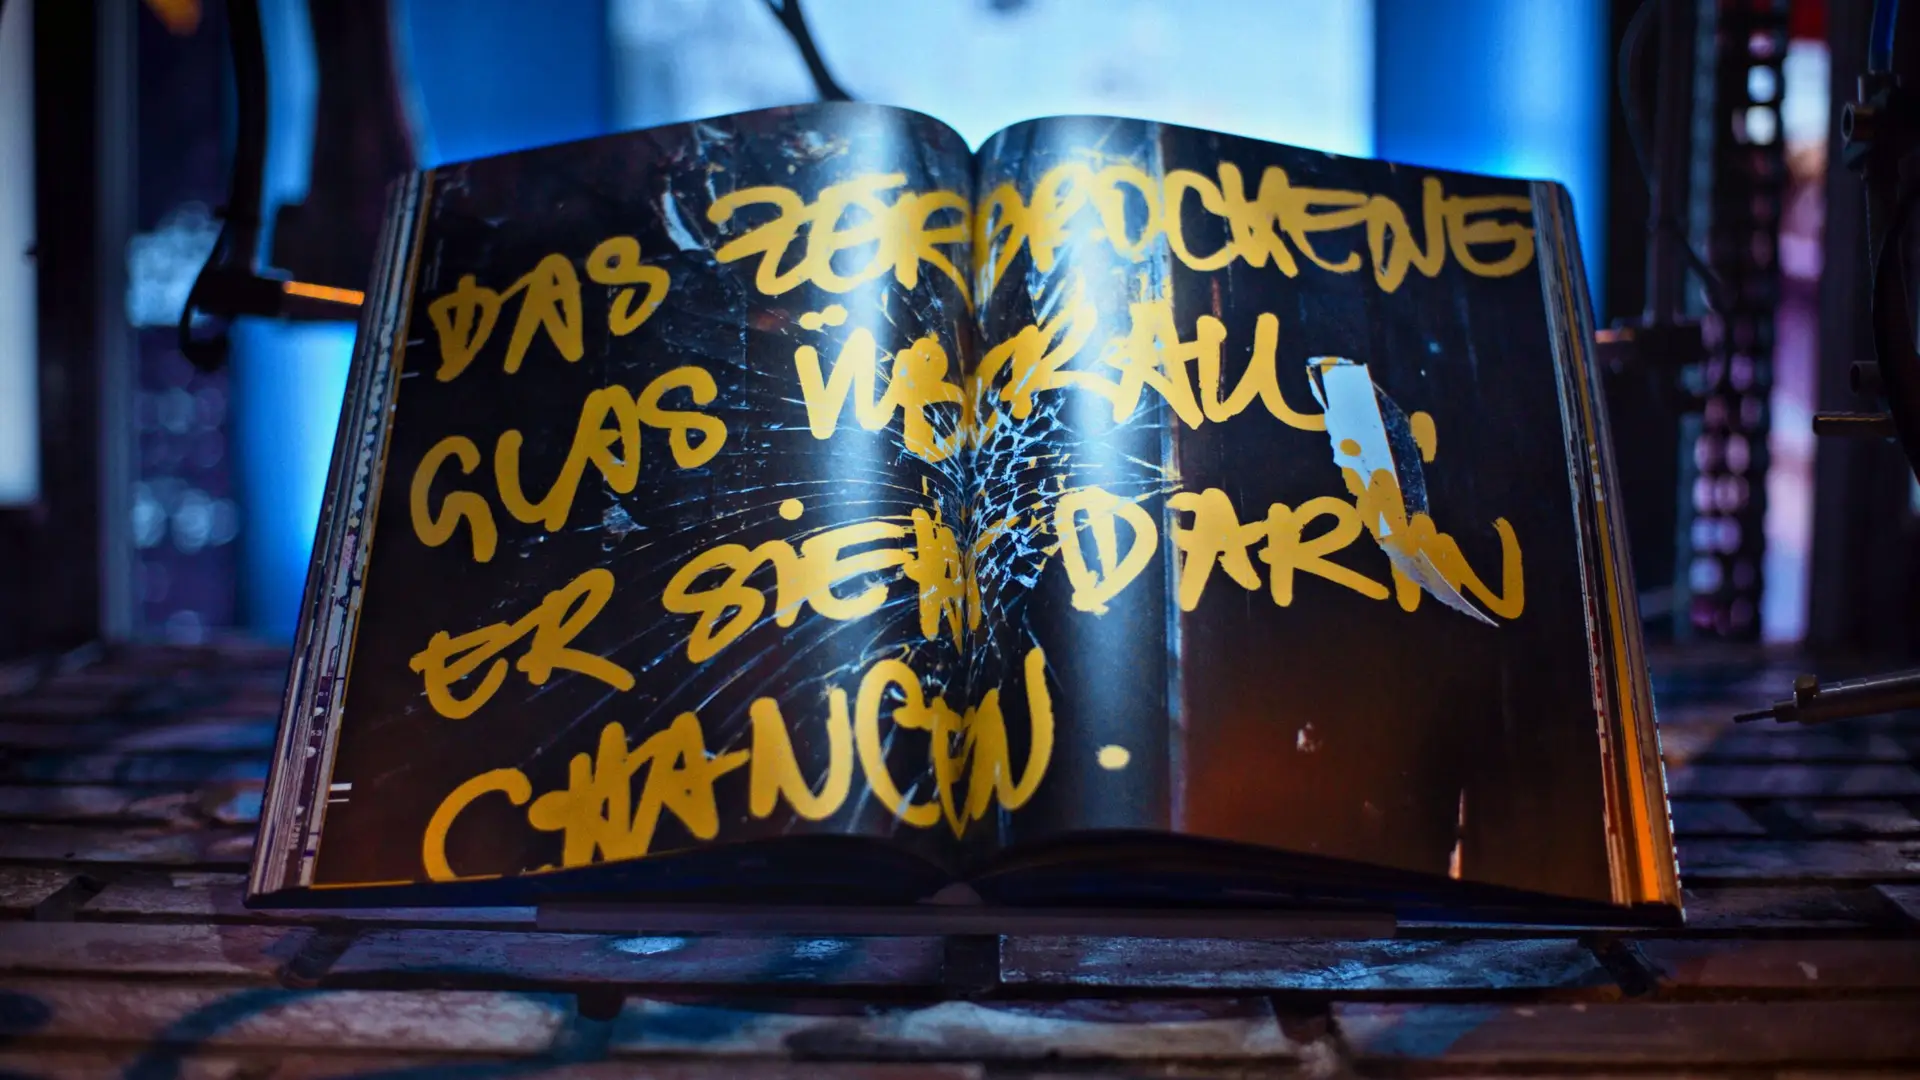 DAS ZERBROCHENE
GLAS ÜBERALL ..
ER SIEHT DARIN
CHANCEN.